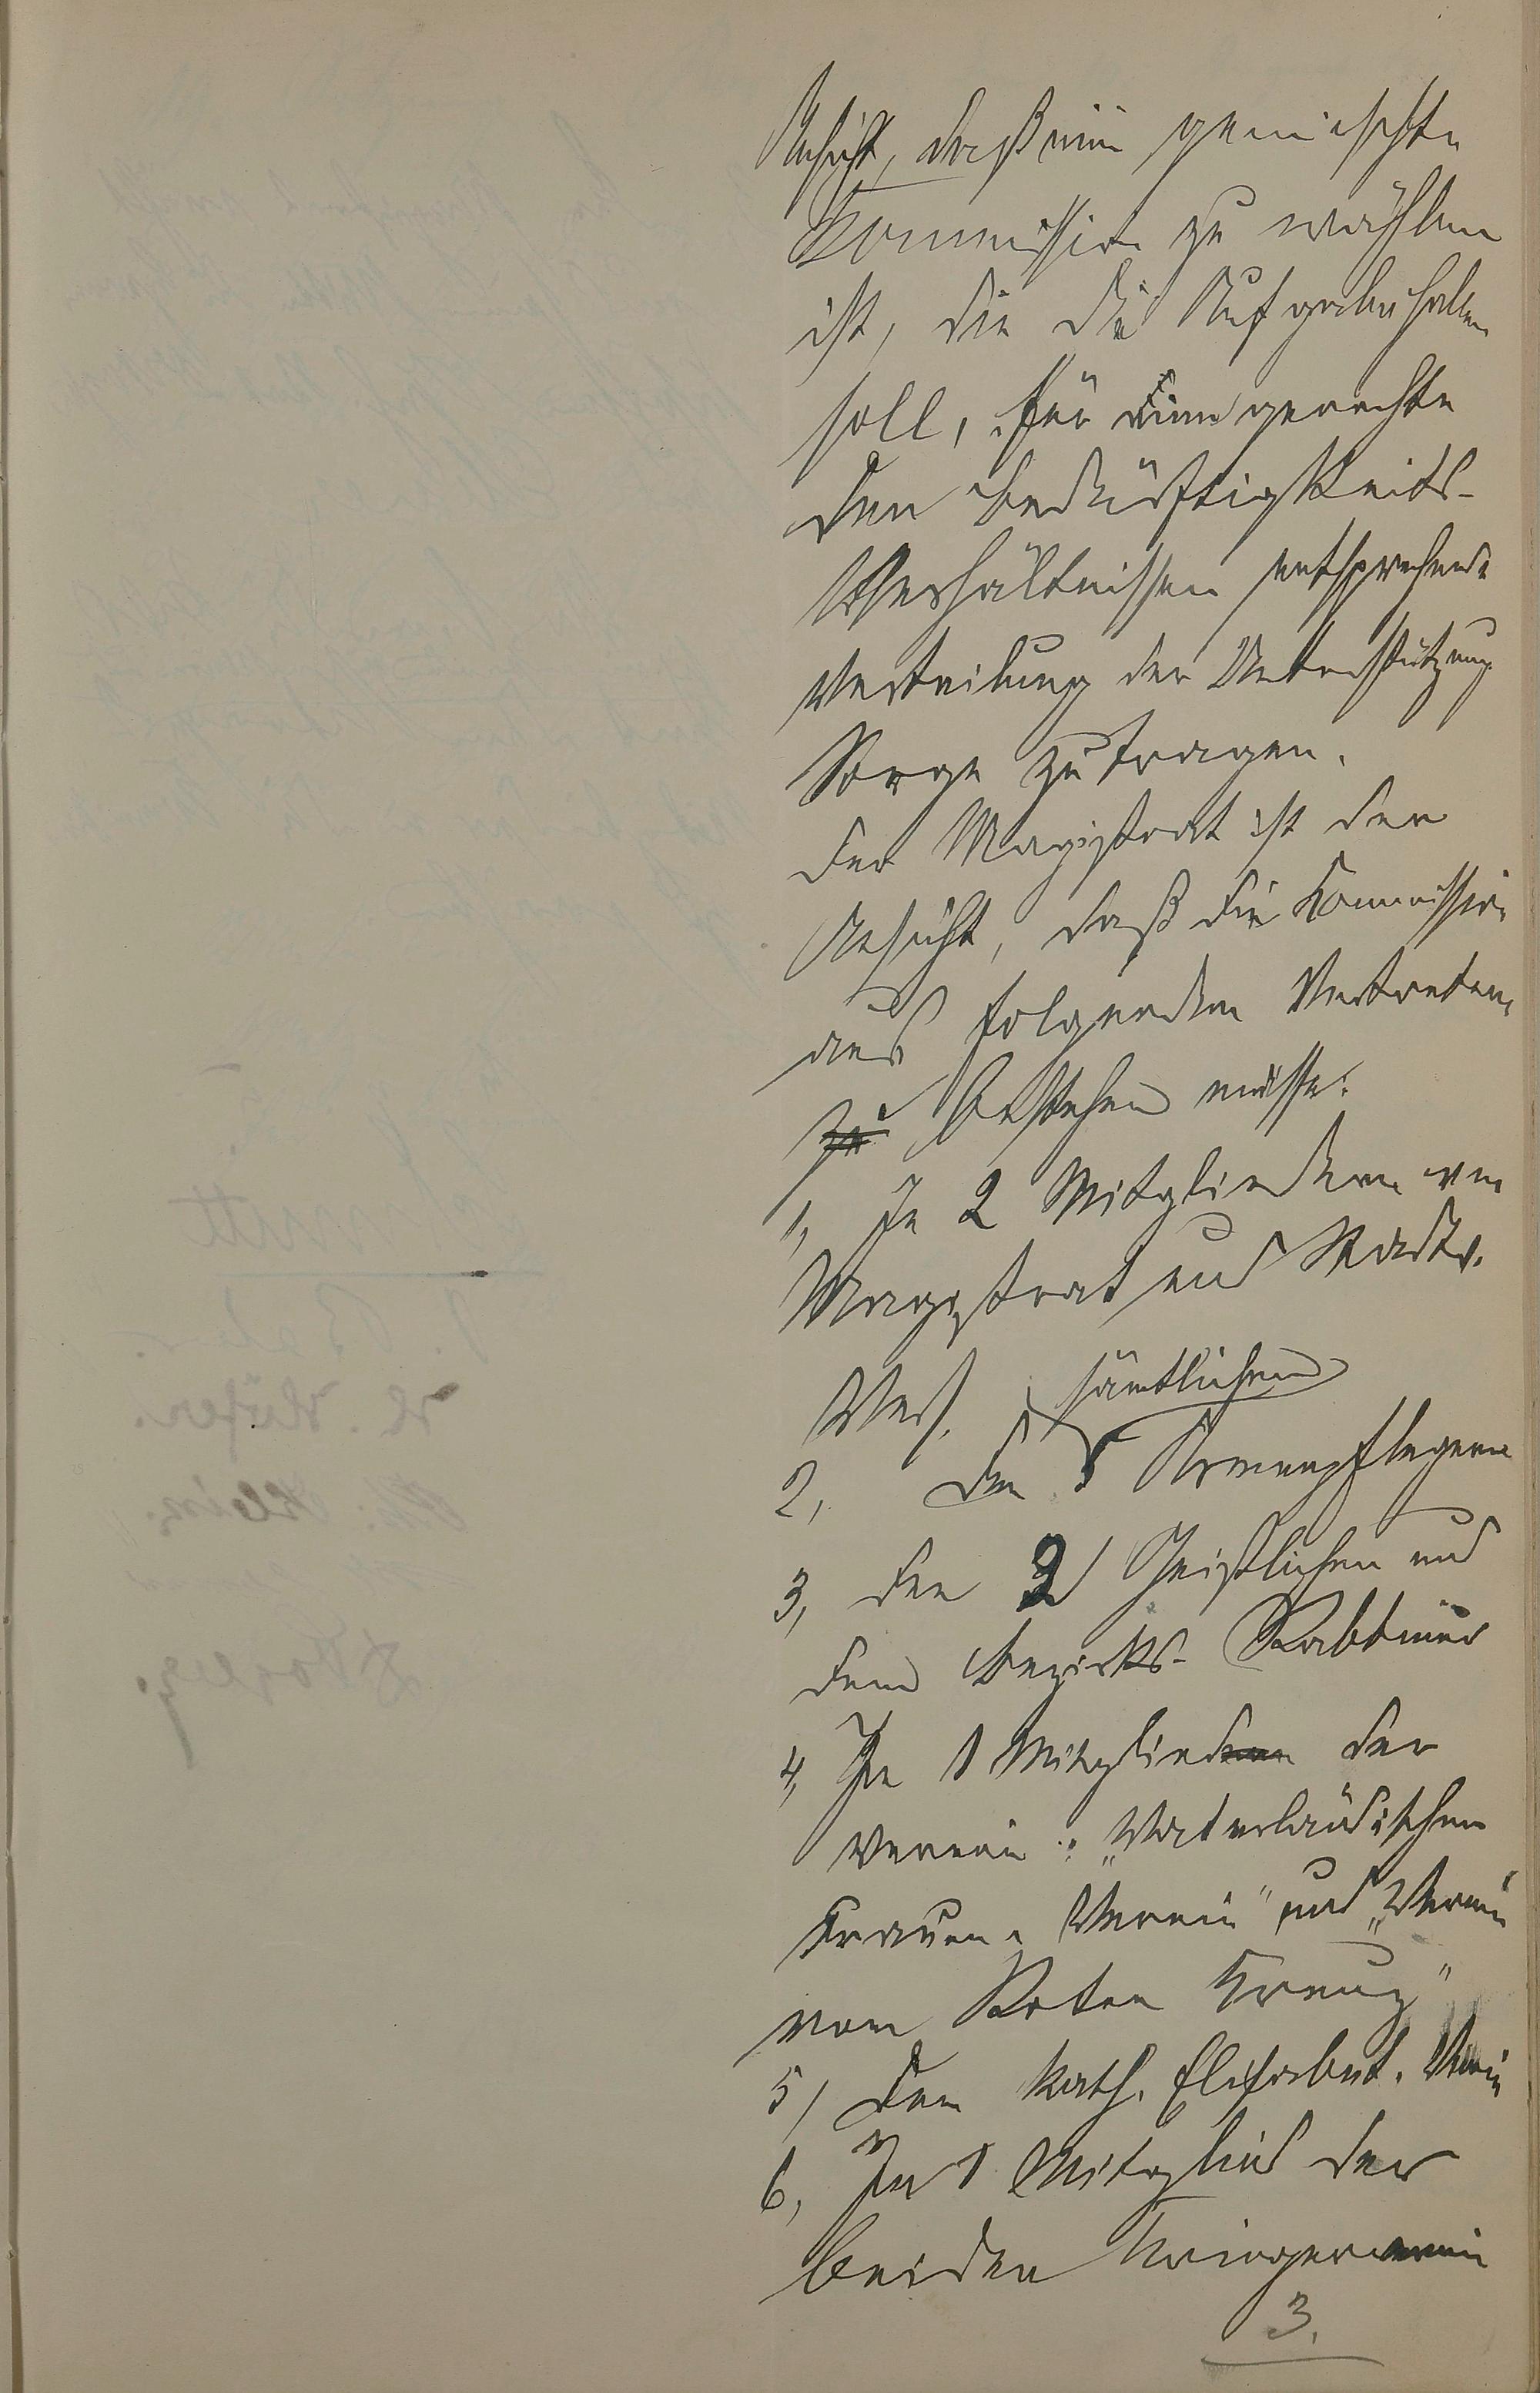 Ansicht, daß eine gemischte
Kommission zu wählen
ist, die die Aufgabe haben
soll, für eine gerechte
den Bedürftigkeits-
Verhältnissen entsprechende
Verteilung der Unterstützung
Sorge zu tragen.
Der Magistrat ist der
Ansicht, daß die Kommission
aus folgenden Vertretern
zu bestehen müsse:
1, Je 2 Mitgliedern von
Magistrat und Stadtv.
Vers. sämtlichen
2, den 5 Armenpflegern
3, den 2 Geistlichen und
dem Bezirks-Rabbiner
4, Je 1 Mitgliedern der
Verein: „Vaterländischen
Frauen-Verein" und „Verein
vom Roten Kreuz"
5, Dem kath. Elisabet. Verein
6, Je 1 Mitglied der
beiden Kriegerverein
3.